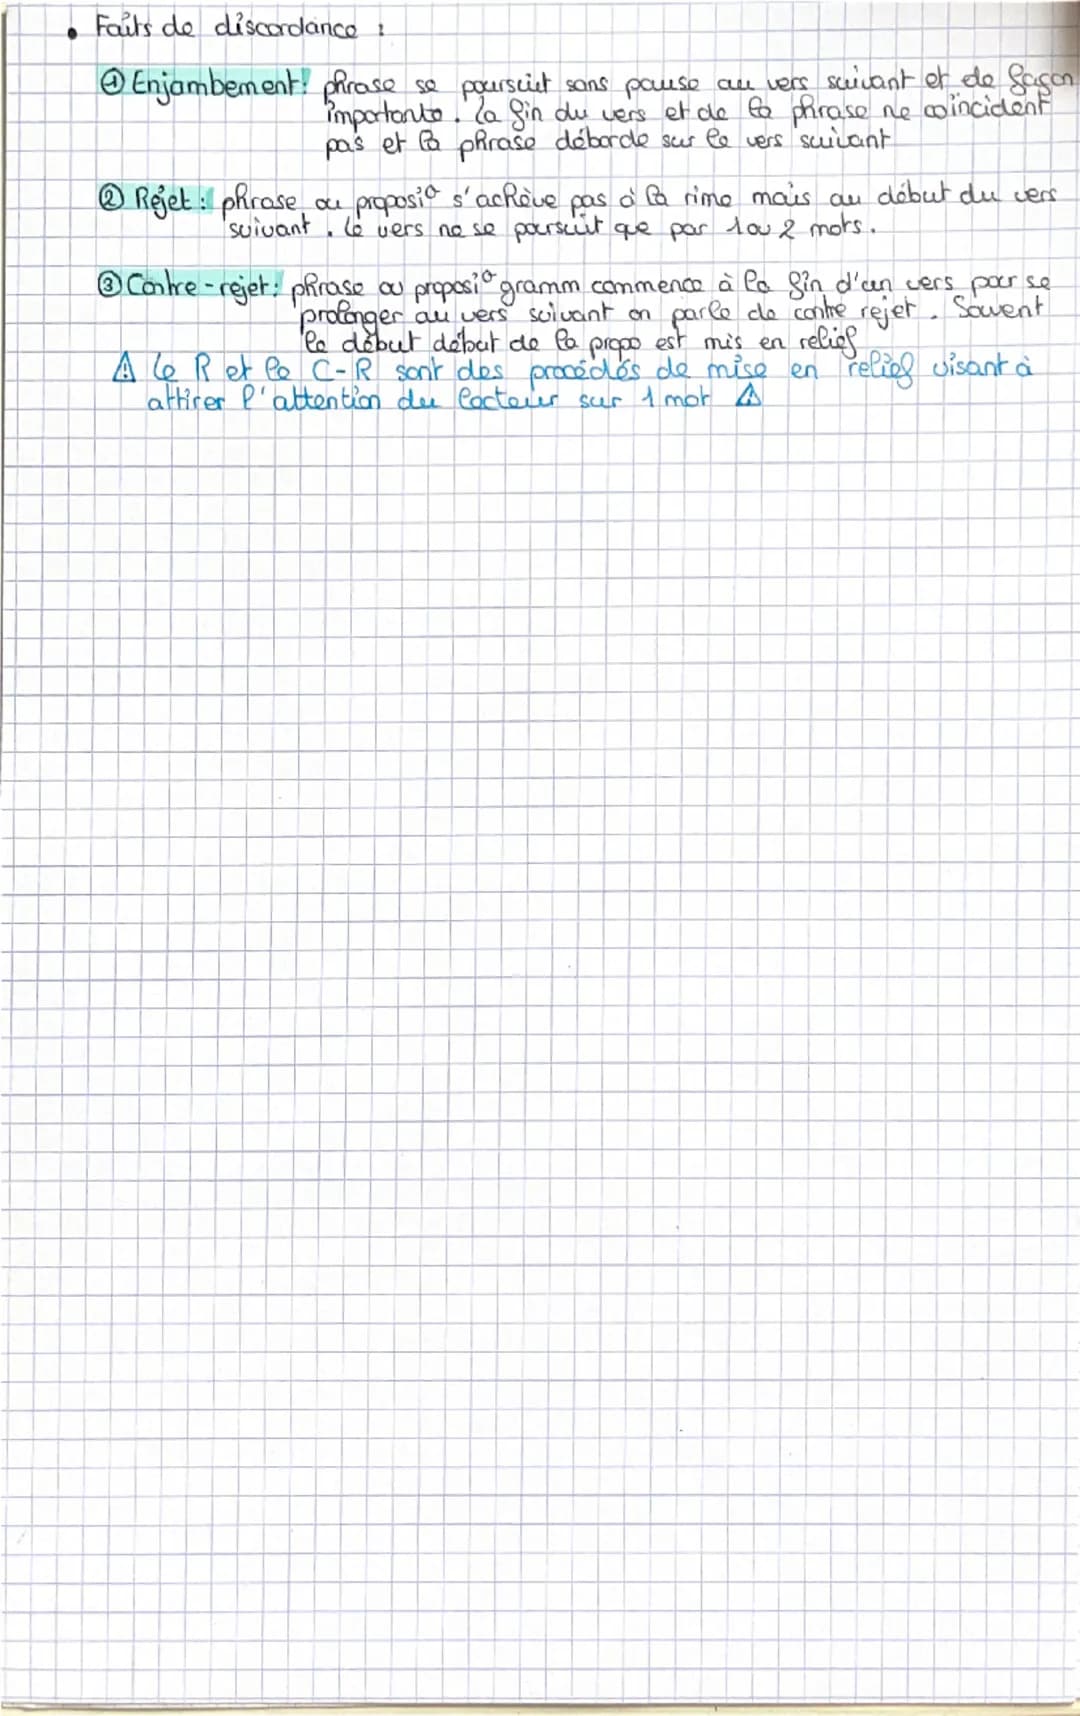 • Faits de discordance :
① Enjambement : phrase se poursuit sans pause au vers suivant et de façon
importante. la fin du vers et de la phrase ne coïncident
pas et la phrase déborde sur le vers suivant
② Rejet : phrase ou proposi° s'achève pas à la rime mais au début du vers
suivant. le vers ne se poursuit que par 1 ou 2 mots.
③ Contre-rejet : phrase ou proposi° gramm commence à la fin d'un vers pour se
prolonger au vers suivant on parle de contre rejet. Souvent
le début début de la propo est mis en relief
⚠ Le R et le C-R sont des procédés de mise en relief visant à
attirer l'attention du lecteur sur 1 mot ⚠